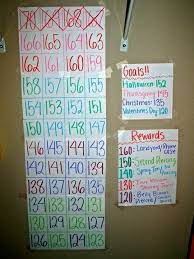 166 165 164 163
162 161 160 159
158 157 156 155
154 153 152 151
150 149 148 147
146 145 144 143
142 141 140 139
138 137 136 135
134 133 132 131
130 129 128 127
126 125 124 123
Goals!!
Halloween 152
Thanksgiving 145
Christmas: 135
Valentines Day 120
Rewards
160-
150- Second Piercing
140- Spray Tan
130-
120- Belly Button
Piercing